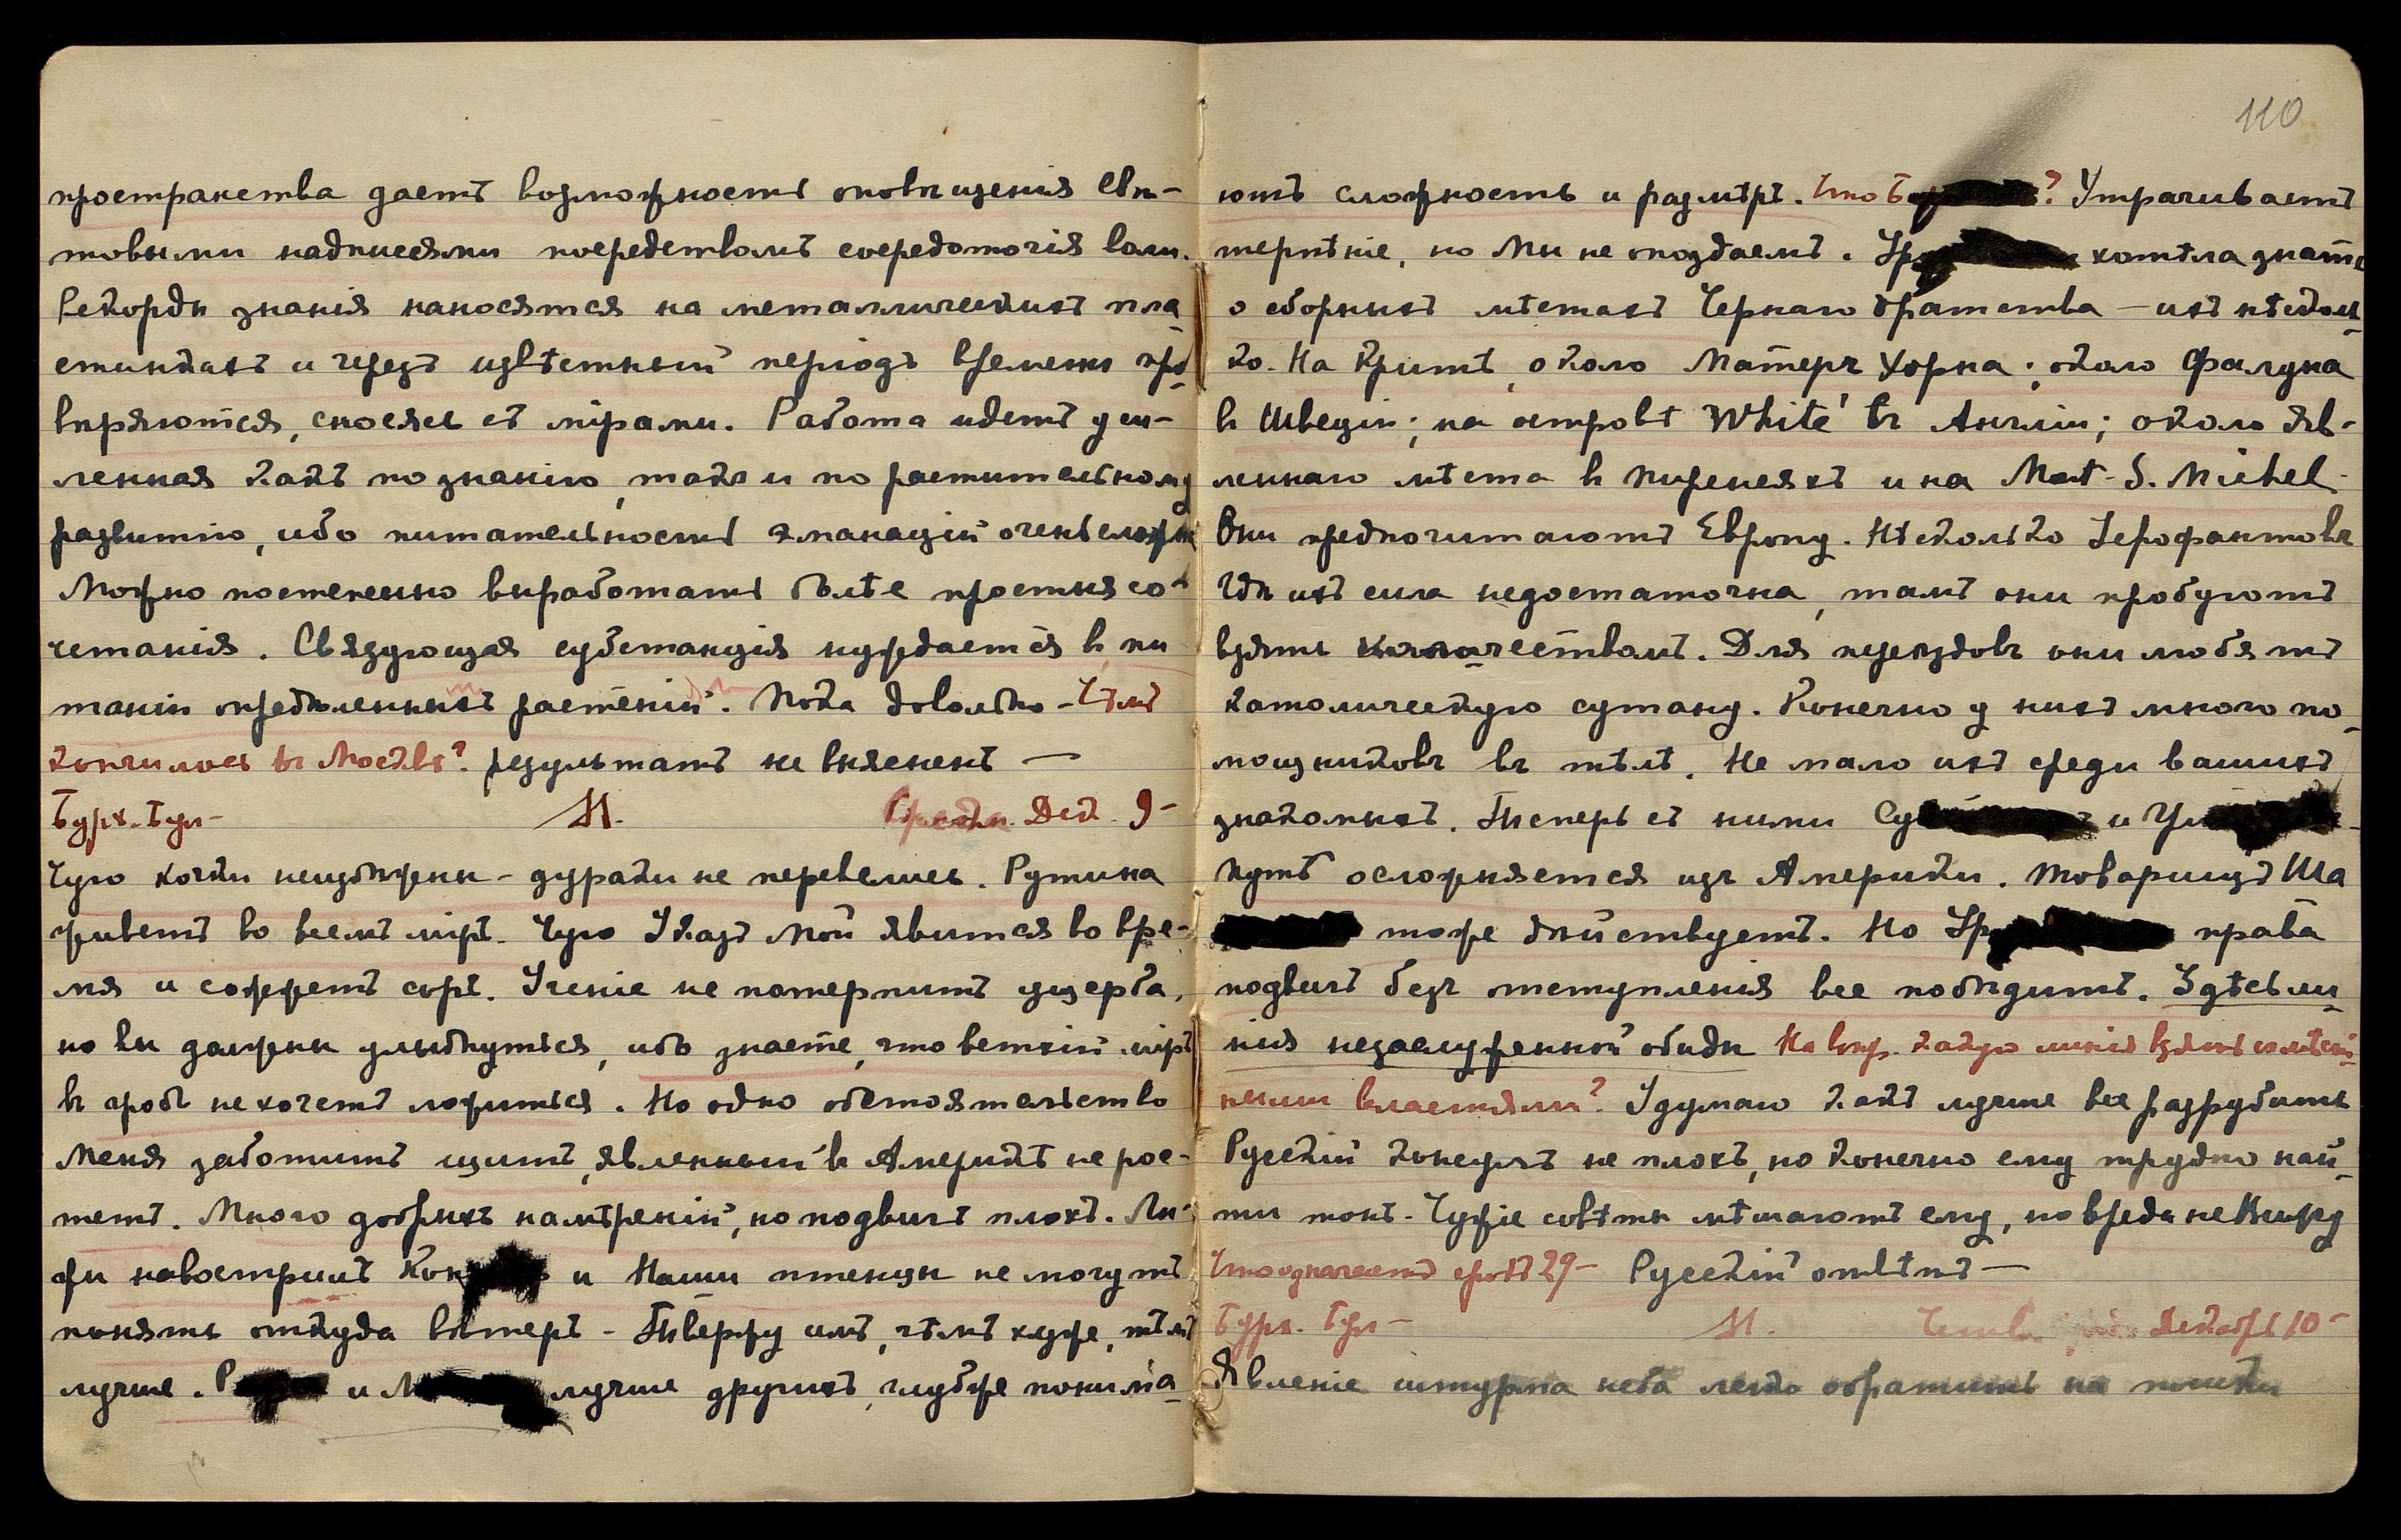 пространства даетъ возможность оповѣщенія свѣ-
товыми надписями посредствомъ сосредоточія воли.
Рекорды знанія наносятся на металлическихъ пла-
стинкахъ и черезъ извѣстный періодъ времени про-
вѣряются, сносясь съ мірами. Работа идетъ уси-
ленная какъ по знанію, такъ и по растительному
развитію, ибо питательность эманацій очень сложна
Можно постепенно выработать болѣе простыя со-
четанія. Связующая субстанція нуждается въ пи
таніи опредѣленныхъ растеній. Пока довольно - Чѣмъ
кончилось въ Москвѣ? результатъ не выясненъ —
Бурх. Бул- М. Среда. Дек. 9-
Чую кочки неизбѣжны - дураки не перевелись. Рутина
живетъ во всемъ мірѣ. Чую Указъ Мой явится во вре-
мя и сожжетъ соръ. Ученіе не потерпитъ ущерба,
но вы должны улыбнуться, ибо знаете, что ветхій міръ
въ гробъ не хочетъ ложиться. Но одно обстоятельство
Меня заботитъ щитъ, явленный въ Америкѣ не рос-
тетъ. Много добрыхъ намѣреній, но подвигъ плохъ. Лы-
жи навострилъ и Наши птенцы не могутъ
понять откуда вѣтеръ - Твержу имъ, чѣмъ хуже, тѣмъ
лучше. и лучше другихъ, глубже понима-
110
ютъ сложность и размѣръ. Что ? Утрачиваетъ
терпѣніе, но Мы не опоздаемъ. хотѣла знать
о сборныхъ мѣстахъ Чернаго братства - ихъ нѣсколь-
ко. На Критѣ, около Матеръ Хорна; около Фалуна
въ Швеціи; на островѣ White' въ Англіи; около явл-
леннаго мѣста въ Пиренеяхъ и на Mont-S. Michel.
Они предпочитаютъ Европу. Нѣсколько Іерофантовъ
Гдѣ ихъ сила недостаточна, тамъ они пробуютъ
взять количествомъ. Для переѣздовъ они любятъ
католическую сутану. Конечно у нихъ много по-
мощниковъ въ тѣлѣ. Не мало ихъ среди вашихъ
знакомыхъ. Теперь съ ними и
Путь осложняется изъ Америки. Товарищъ Ша
тоже дѣйствуетъ. Но права
подвигъ безъ отступленія все побѣдитъ. Здѣсь ли-
нія незаслуженной обиды На вопр. какую линію взять съ мѣст-
ными властями? Я думаю какъ лучше все разрубить
Русскій консулъ не плохъ, но конечно ему трудно най-
ти тонъ. Чужіе совѣты мѣшаютъ ему, но вреда не Вижу
Что означаетъ срокъ 29- Русскій отвѣтъ —
Бурх. Бул- М. Декабрь 10-
Явленіе штурма неба легко обратить на